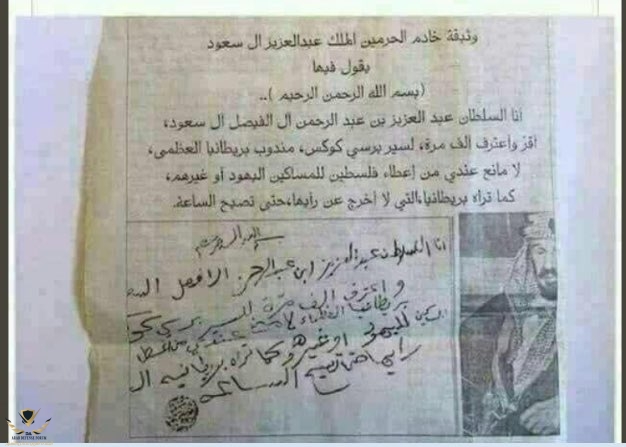 وثيقة خادم الحرمين الملك عبدالعزيز ال سعود
يقول فيها
(بسم الله الرحمن الرحيم )..
أنا السلطان عبد العزيز بن عبد الرحمن ال الفيصل ال سعود،
أقر وأعترف الف مرة، لسير برسي كوكس، مندوب بريطانيا العظمى،
لا مانع عندي من إعطاء فلسطين للمساكين اليهود أو غيرهم،
كما تراه بريطانيا،التي لا أخرج عن رأيها،حتى تصيح الساعة.
انا السلطان عبد العزيز ابن عبد الرحمن ال
و اعترف الف مرة للسير برسي
بريطانيا العظماء لا مانع عندي
لليهود او غيرهم كما تراه بريطانيه
الساعه